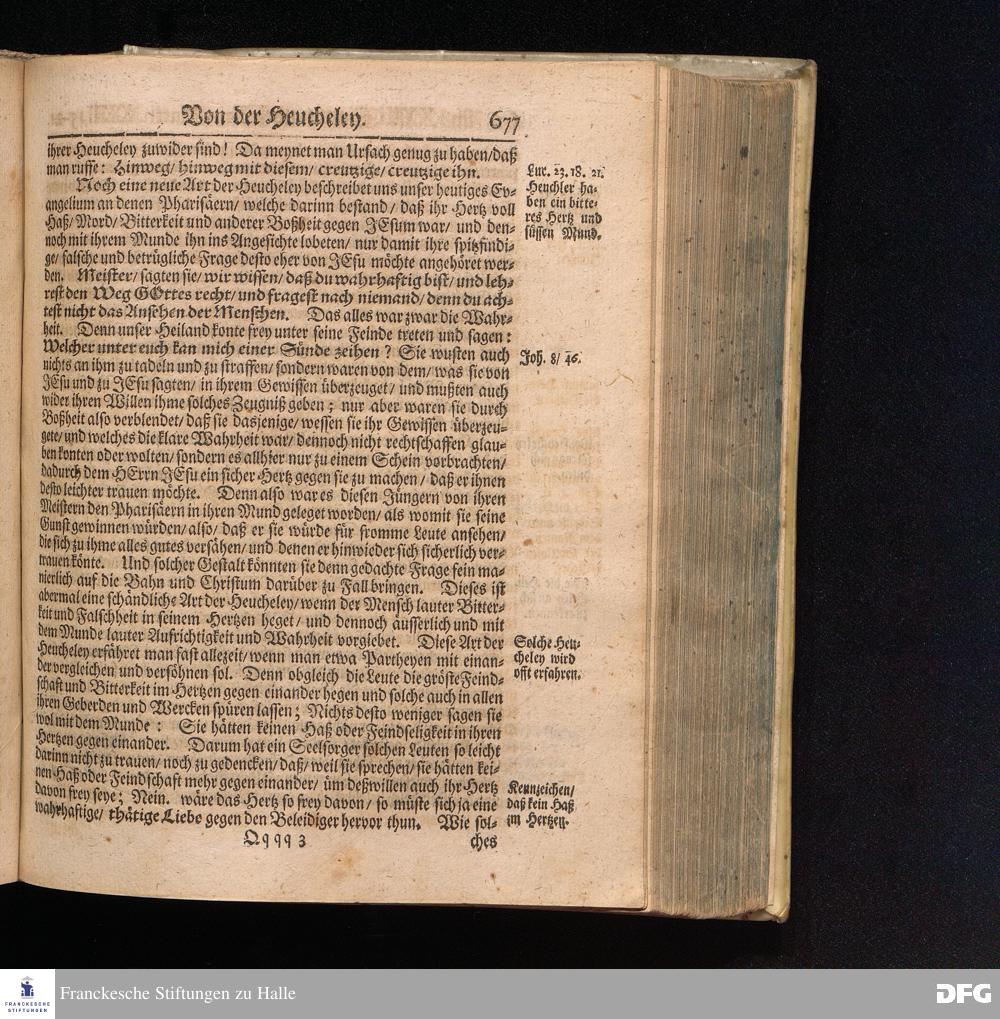 Von der Heucheley.
677
ihrer Heucheley zuwider sind! Da meynet man Ursach genug zu haben/daß
man ruffe: Hinweg/ hinweg mit diesem/ creutzige/ creutzige ihn.
Noch eine neue Art der Heucheley beschreibet uns unser heutiges Ev-
angelium an denen Pharisäern/ welche darinn bestand/ daß ihr Hertz voll
Haß/ Mord/ Bitterkeit und anderer Boßheit gegen JEsum war/ und den-
noch mit ihrem Munde ihn ins Angesichte lobeten/ nur damit ihre spitzfindi-
ge/ falsche und betrügliche Frage desto eher von JEsu möchte angehöret wer-
den. Meister/ sagten sie/ wir wissen/ daß du wahrhaftig bist/ und leh-
rest den Weg GOttes recht/ und fragest nach niemand/ denn du ach-
test nicht das Ansehen der Menschen. Das alles war zwar die Wahr-
heit. Denn unser Heiland konte frey unter seine Feinde treten und sagen:
Welcher unter euch kan mich einer Sünde zeihen? Sie wusten auch
nichts an ihm zu tadeln und zu straffen/ sondern waren von dem/ was sie von
JEsu und zu JEsu sagten/ in ihrem Gewissen überzeuget/ und mußten auch
wider ihren Willen ihme solches Zeugniß geben; nur aber waren sie durch
Boßheit also verblendet/ daß sie dasjenige/ wessen sie ihr Gewissen überzeu-
gete/ und welches die klare Wahrheit war/ dennoch nicht rechtschaffen glau-
ben konten oder wolten/ sondern es allhier nur zu einem Schein vorbrachten/
dadurch dem HErrn JEsu ein sicher Hertz gegen sie zu machen/ daß er ihnen
desto leichter trauen möchte. Denn also war es diesen Jüngern von ihren
Meistern den Pharisäern in ihren Mund geleget worden/ als womit sie seine
Gunst gewinnen würden/ also/ daß er sie würde für fromme Leute ansehen/
die sich zu ihme alles gutes versähen/ und denen er hinwieder sich sicherlich ver-
trauen könte. Und solcher Gestalt könnten sie denn gedachte Frage fein ma-
nierlich auf die Bahn und Christum darüber zu Fall bringen. Dieses ist
abermal eine schändliche Art der Heucheley/ wenn der Mensch lauter Bitter-
keit und Falschheit in seinem Hertzen heget/ und dennoch äusserlich und mit
dem Munde lauter Aufrichtigkeit und Wahrheit vorgiebet. Diese Art der
Heucheley erfähret man fast allezeit/ wenn man etwa Partheyen mit einan-
der vergleichen und versöhnen sol. Denn obgleich die Leute die gröste Feind-
schaft und Bitterkeit im Hertzen gegen einander hegen und solche auch in allen
ihren Geberden und Wercken spüren lassen; Nichts desto weniger sagen sie
wol mit dem Munde: Sie hätten keinen Haß oder Feindseligkeit in ihren
Hertzen gegen einander. Darum hat ein Seelsorger solchen Leuten so leicht
darinn nicht zu trauen/ noch zu gedencken/ daß/ weil sie sprechen/ sie hätten kei-
nen Haß oder Feindschaft mehr gegen einander/ üm deßwillen auch ihr Hertz
davon frey seye; Nein. wäre das Hertz so frey davon/ so müste sich ja eine
wahrhaftige/ thätige Liebe gegen den Beleidiger hervor thun. Wie sol-
Qqqq 3
ches
Luc. 23. 18. 21.
Heuchler ha-
ben ein bitte-
res Hertz und
süssen Mund.
Joh. 8/ 46.
Solche Heu-
cheley wird
offt erfahren.
Kennzeichen/
daß kein Haß
im Hertzen.
FRANCKESCHE
STIFTUNGEN
Franckesche Stiftungen zu Halle
DFG